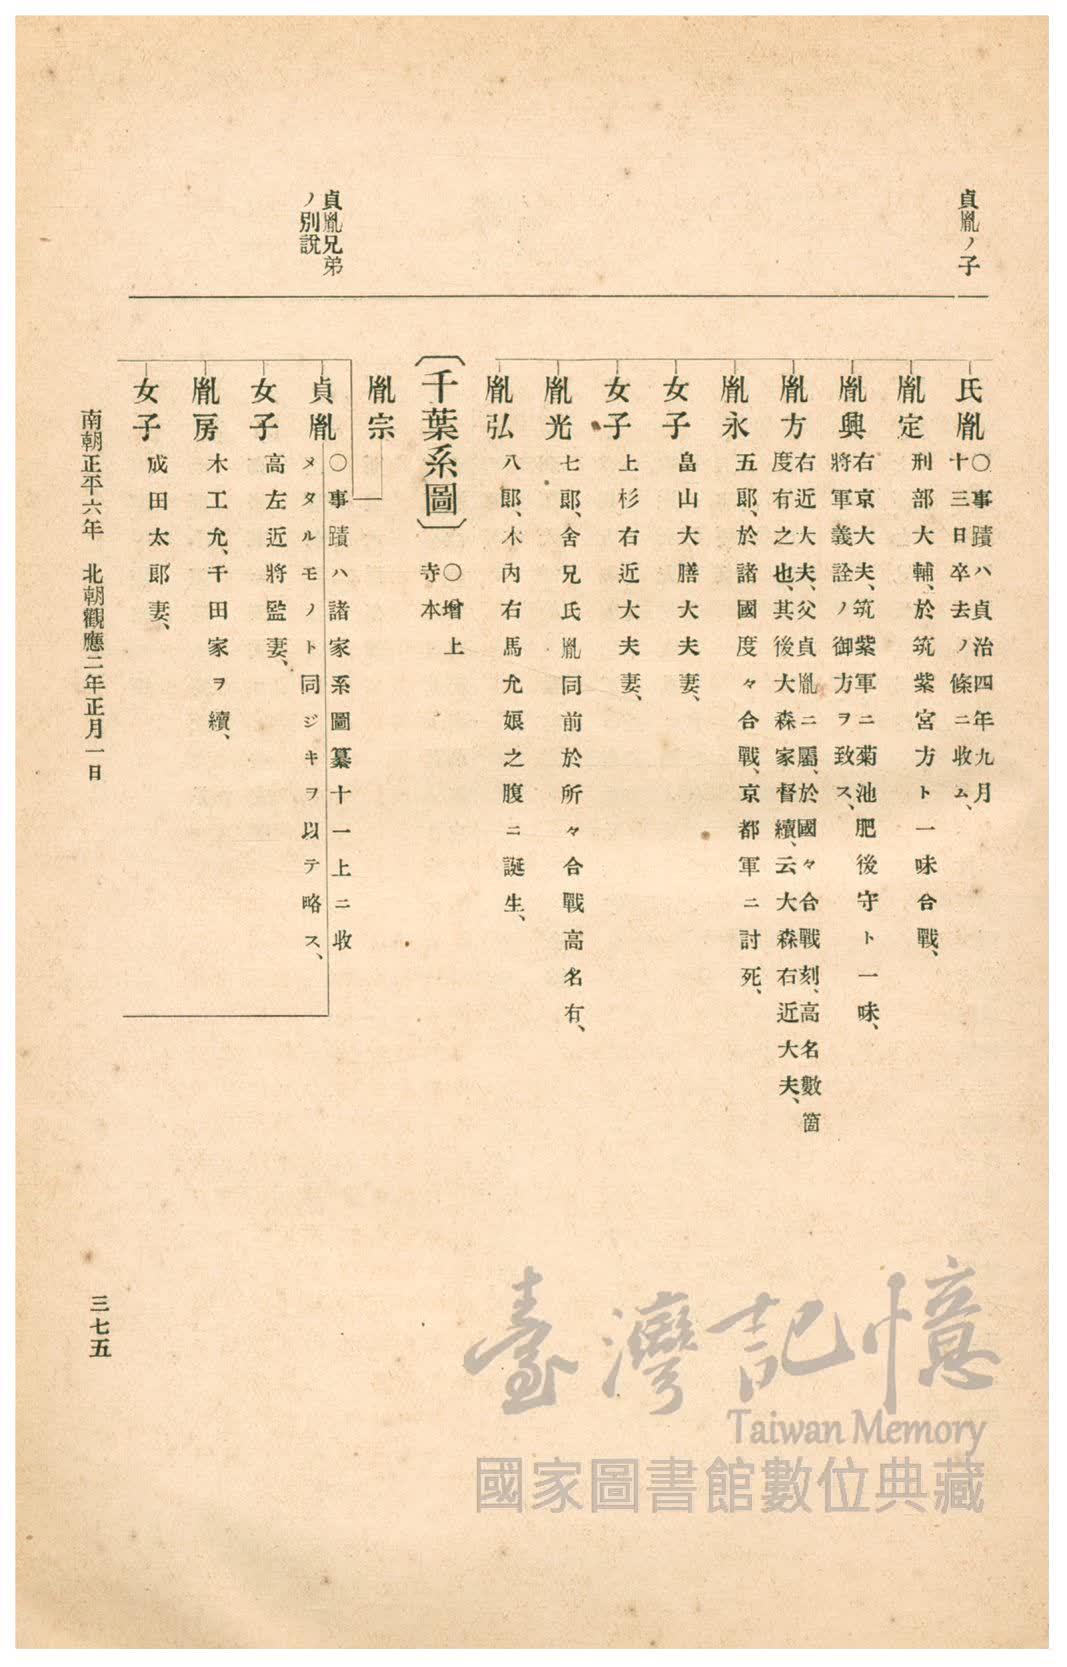 貞胤ノ子
氏胤
〇事蹟ハ貞治四年九月
十三日卒去ノ條ニ收ム、
胤定
刑部大輔、於筑紫宮方ト一味合戰、
胤興
右京大夫、筑紫軍ニ菊池肥後守ト一味、
將軍義詮ノ御方ヲ致ス、
胤方
右近大夫、父貞胤ニ屬、於國々合戰刻、高名數箇
度有之也、其後大森家督續、云大森右近大夫、
胤永
五郎、於諸國度々合戰、京都軍ニ討死、
女子
畠山大膳大夫妻、
女子
上杉右近大夫妻、
胤光
七郎、舍兄氏胤同前於所々合戰高名有、
胤弘
八郎、木內右馬允娘之腹ニ誕生、
〔千葉系圖〕
〇增上
寺本
胤宗
貞胤兄弟
ノ別說
貞胤
〇事蹟ハ諸家系圖纂十一上ニ收
メタルモノト同ジキヲ以テ略ス、
女子
高左近將監妻、
胤房
木工允、千田家ヲ續、
女子
成田太郎妻、
南朝正平六年 北朝觀應二年正月一日
三七五
臺灣記憶
Taiwan Memory
國家圖書館數位典藏